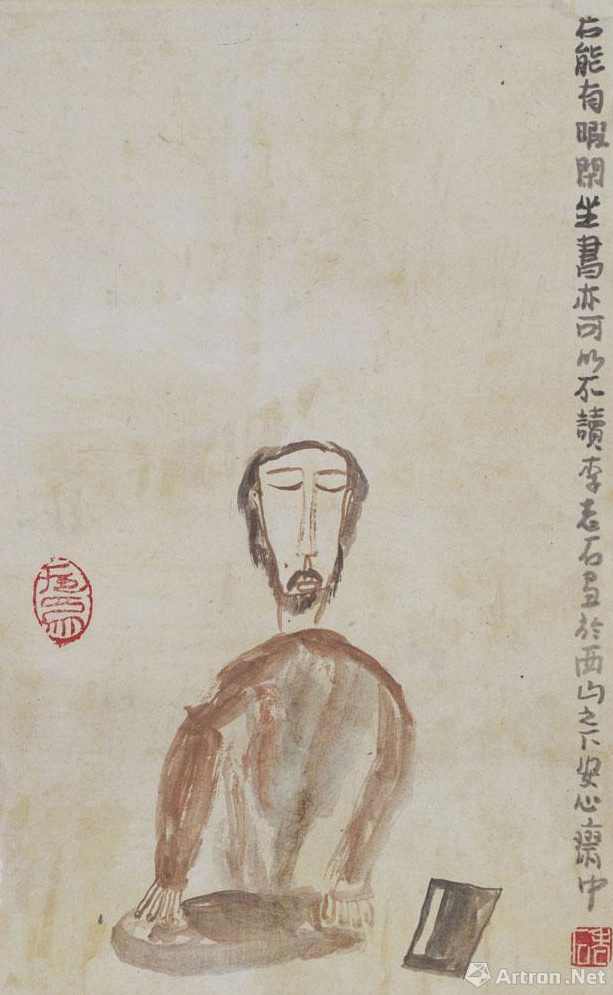 若能有暇閑坐書亦可以不讀李老石畫於西山之下安心齋中
Artron.Net